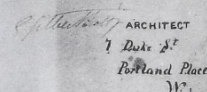 ARCHITECT
7 Duke St
Portland Place
W.